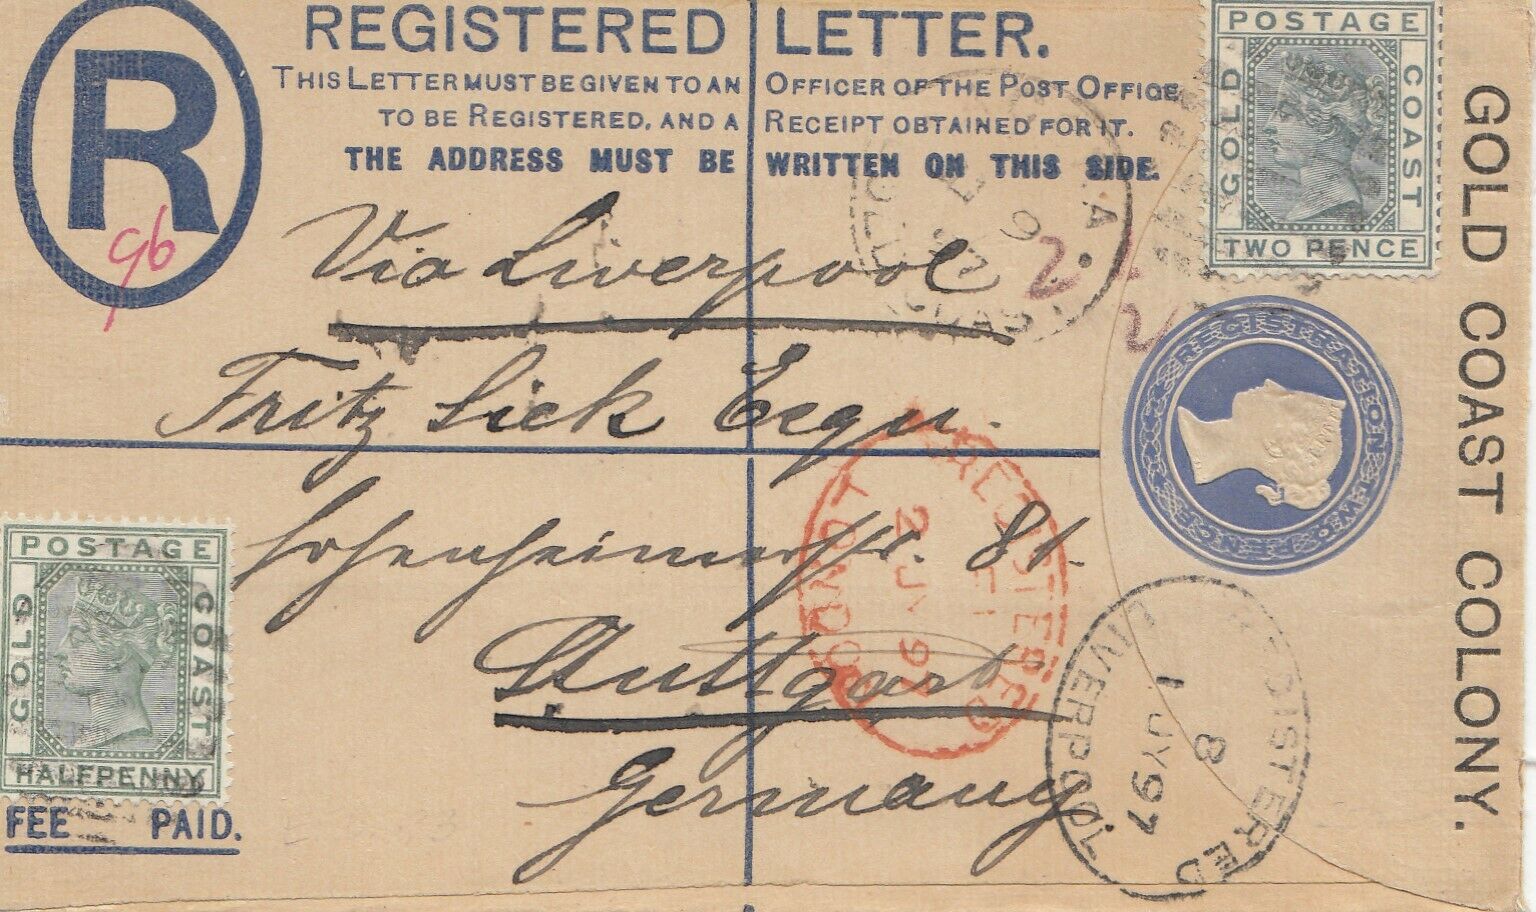 REGISTERED LETTER.
THIS LETTER MUST BE GIVEN TO AN OFFICER OF THE POST OFFICE
TO BE REGISTERED, AND A RECEIPT OBTAINED FOR IT.
THE ADDRESS MUST BE WRITTEN ON THIS SIDE.
R
96
POSTAGE
GOLD
COAST
TWO PENCE
GOLD COAST COLONY.
Via Liverpool
Fritz Sick Esqu.
Hohenheimerstr. 81.
Stuttgart
Germany.
POSTAGE
GOLD
COAST
HALFPENNY
FEE PAID.
REGISTRATION
TWO PENCE
REGISTERED
2 JY 97
LONDON
REGISTERED
8
1 JY 97
LIVERPOOL